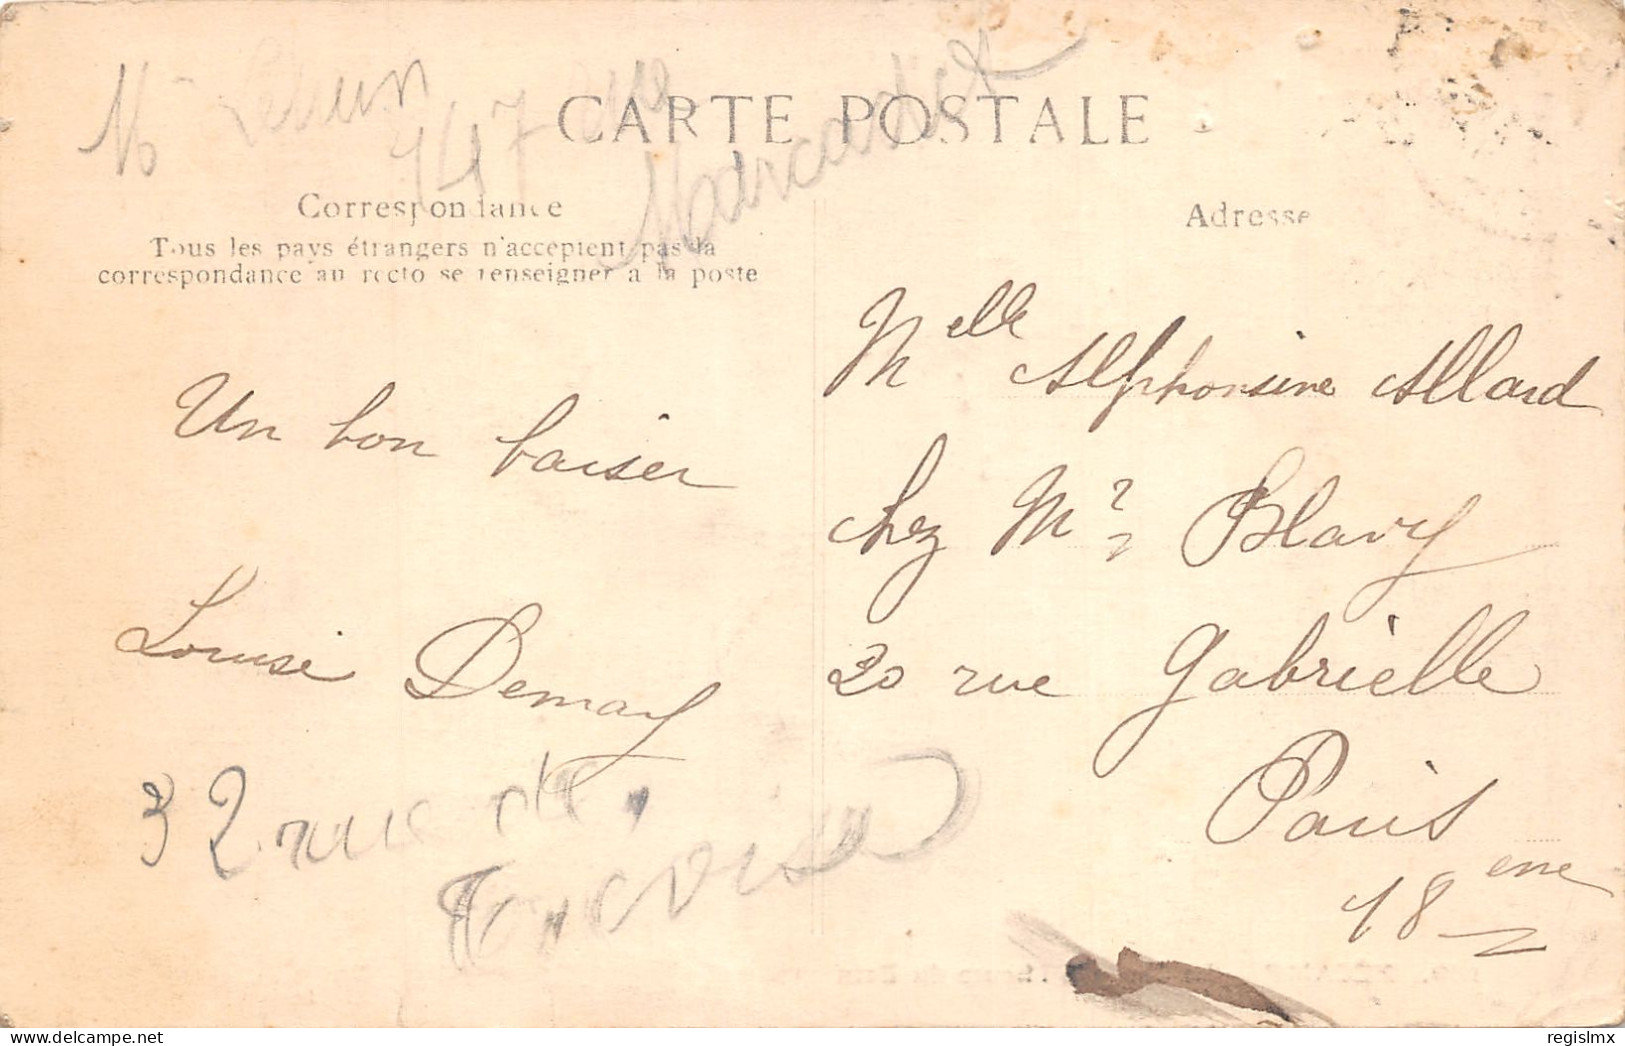 147 rue
Marcadet
CARTE POSTALE
Correspondance
Tous les pays étrangers n'acceptent pas la
correspondance au recto se renseigner à la poste
Adresse
Un bon baiser
Louise Demay
32 rue de
Melle Alphonsine Allard
chez Mr Blavy
20 rue Gabrielle
Paris
18 eme
regislmx